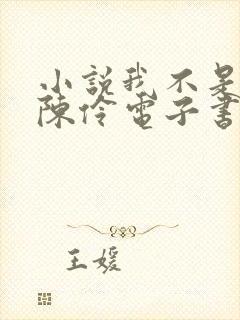 小説我不是
陳伶電子書
王媛